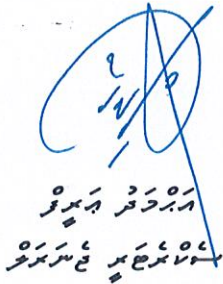 އަޙްމަދު ޢަރީފް
ސެކްރެޓަރީ ޖެނަރަލް